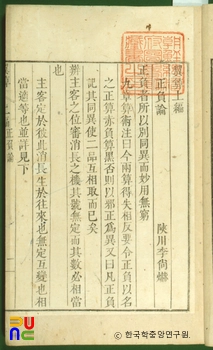 翼算上編
正負論 陜川李尙爀
正負者所以別同異而妙用無窮
九章算術注曰今兩算得失相反要令正負以名
之正算赤負算黑否則以邪正爲異又曰凡正負
記其同異使二品互相取而已矣
辨主客之位審消長之機其號無定而其數必相當
也
主客定於彼此消長生於往來也無定互變也相
當適等也並詳見下
正負論
한국학중앙연구원